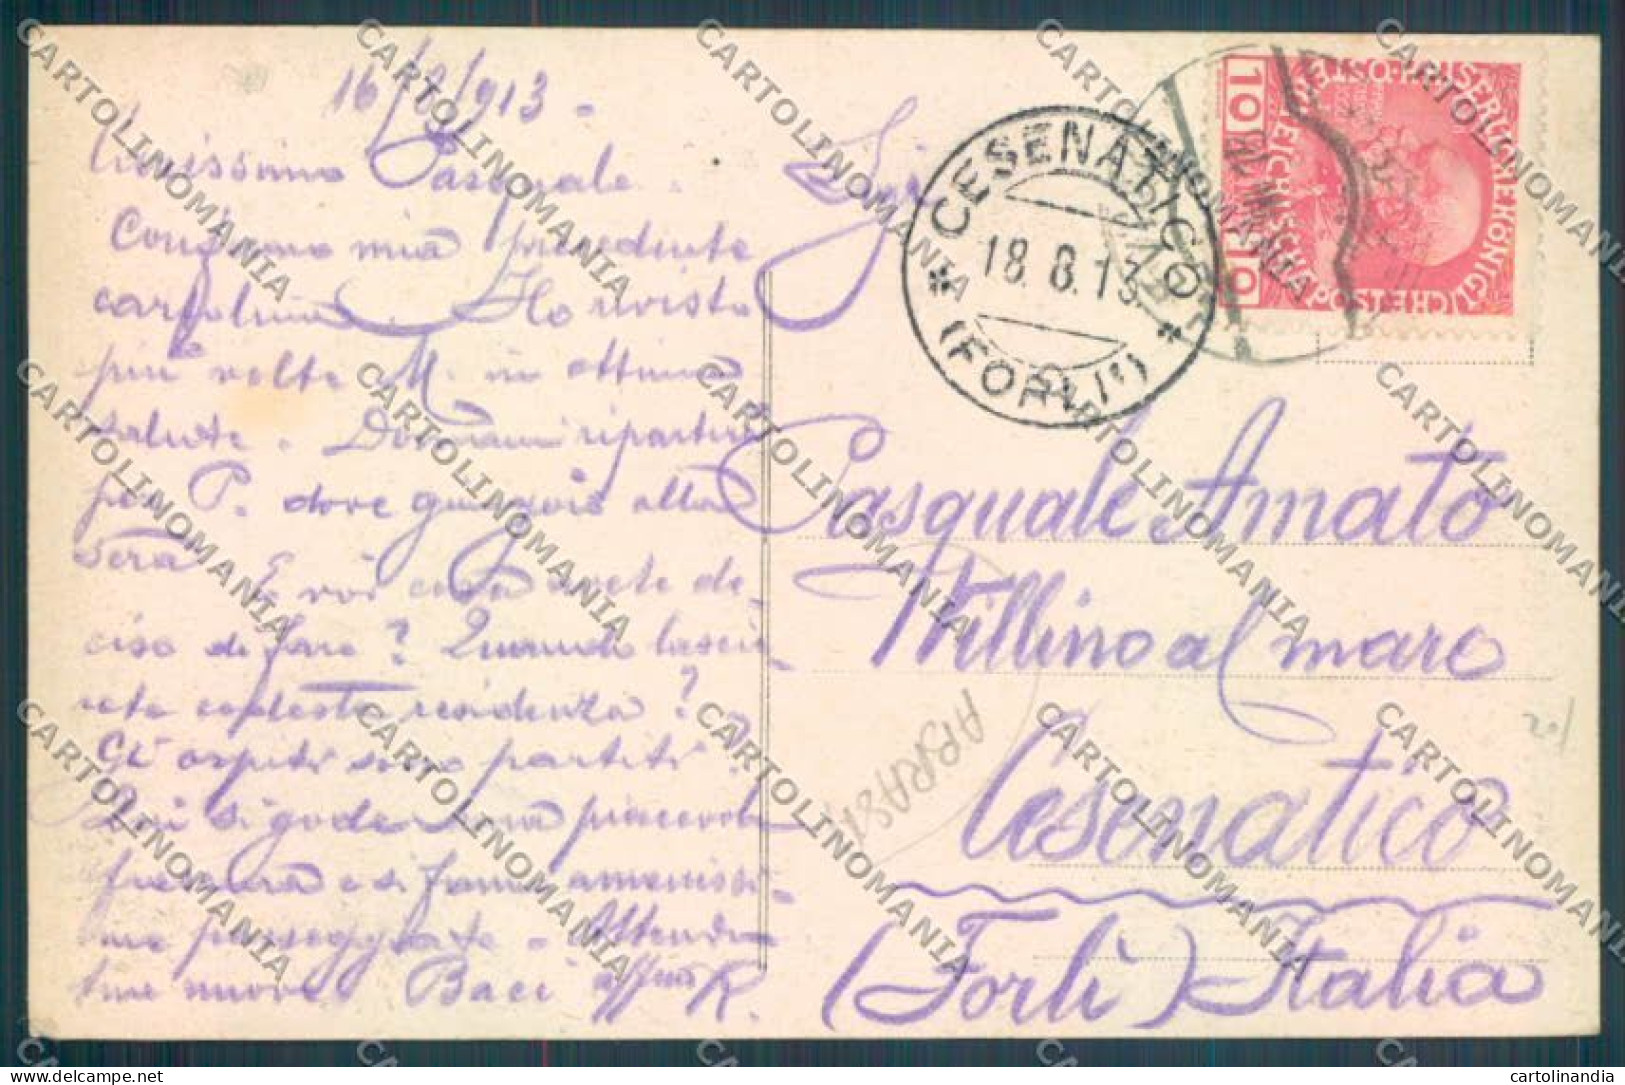 16/8/913 -
Carissimo Pasquale.
Confermo mia precedente
cartolina. Ho rivisto
più volte M. in ottima
salute. Domani ripartirò
per P. dove giungerò alla
sera. E voi cosa avete de-
ciso di fare? Quando lascie-
rete codesta residenza?
Gi ospiti sono partiti?
Qui si gode una piacevole
frescura e si fanno amenissi-
me passeggiate - Attendia
tue nuove. Baci affmi R.
Sig.
Pasquale Amato
Willino al mare
Cesenatico
(Forlì) Italia
CESENATICO
18.8.13
(FORLI')
10 10
KAISERLICHE KÖNIGLICHE
POST
ABRASA
20/
CARTOLINOMANIA
cartolinandia